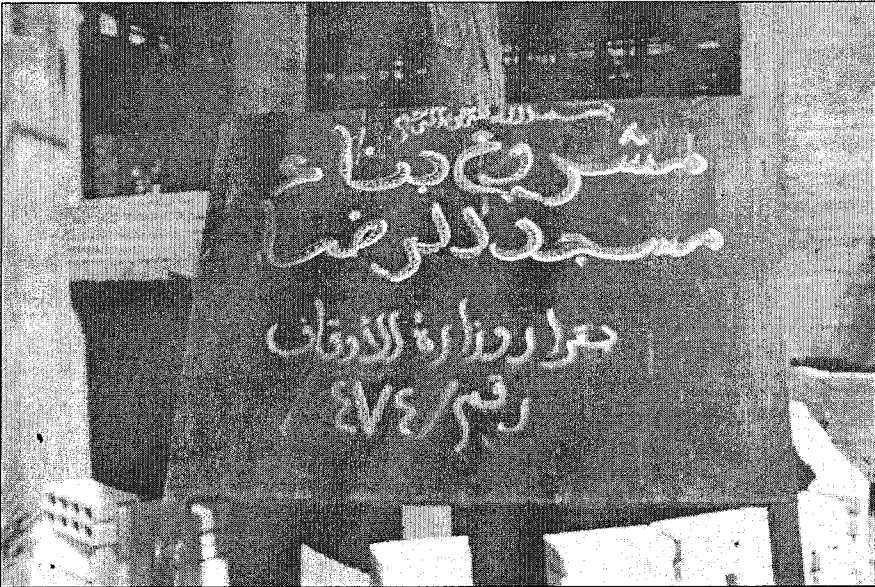 بسم الله الرحمن الرحيم
مشروع بناء
مسجد الرضا
بقرار وزارة الأوقاف
رقم/٤٧٤